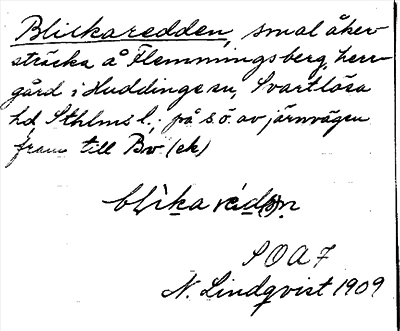 Blickaredden, smal åker-
sträcka å Flemmingsberg, herr-
gård i Huddinge sn, Svartlösa
hd, Sthlms l.; på s.ö. av järnvägen
fram till Bv (ek)
blìkarèdn
S O A 7
N. Lindqvist 1909